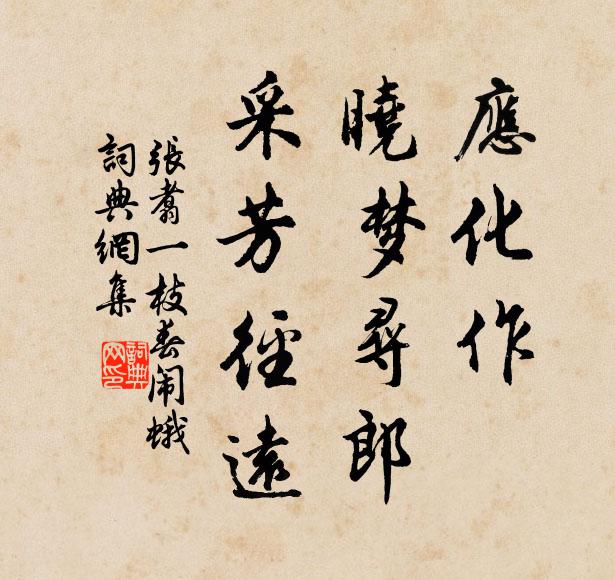 應化作
曉梦尋郎
采芳徑遠
張翥一枝春闹蛾
詞典網集
詞典網印